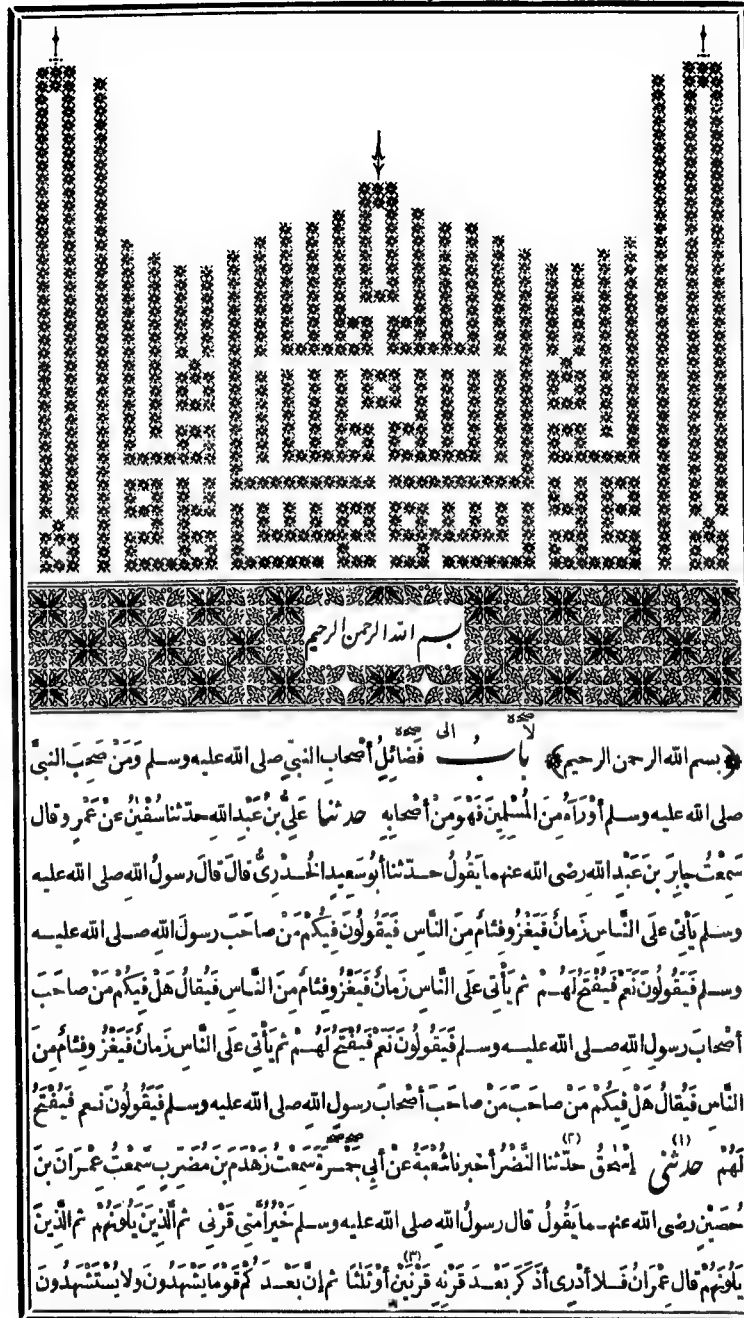 بسم الله الرحمن الرحيم
لا صحة الى صحة
﴿بسم الله الرحمن الرحيم﴾ بابُ فَضَائِلِ أَصْحَابِ النبيِّ صلى الله عليه وسلم وَمَنْ صَحِبَ النبيَّ
صلى الله عليه وسلم أَوْ رَآهُ مِنَ المُسْلِمِينَ فَهْوَ مِنْ أَصْحَابِهِ حدثنا عَلِيُّ بنُ عَبْدِ اللهِ حدّثنا سُفْيٰنُ عَنْ عَمْرٍو قال
سَمِعْتُ جابِرَ بنَ عَبْدِ اللهِ رضى الله عنهما يَقُولُ حدّثنا أبُو سَعِيدٍ الخُدْرِىُّ قالَ قالَ رسولُ اللهِ صلى الله عليه
وسلم يَأْتِى عَلَى النَّاسِ زَمانٌ فَيَغْزُو فِئامٌ مِنَ النَّاسِ فَيَقُولُونَ فِيكُمْ مَنْ صاحَبَ رسولَ اللهِ صلى الله عليه
وسلم فَيَقُولُونَ نَعَمْ فَيُفْتَحُ لَهُمْ ثم يَأْتِى عَلَى النَّاسِ زَمانٌ فَيَغْزُو فِئامٌ مِنَ النَّاسِ فَيُقالُ هَلْ فِيكُمْ مَنْ صاحَبَ
أصْحابَ رسولِ اللهِ صلى الله عليه وسلم فَيَقُولُونَ نَعَمْ فَيُفْتَحُ لَهُمْ ثم يَأْتِى عَلَى النَّاسِ زَمانٌ فَيَغْزُو فِئامٌ مِنَ
النَّاسِ فَيُقالُ هَلْ فِيكُمْ مَنْ صاحَبَ مَنْ صاحَبَ أصْحابَ رسولِ اللهِ صلى الله عليه وسلم فَيَقُولُونَ نعم فَيُفْتَحُ
لَهُمْ (١) حدثنى إسْحٰقُ (٢) حدّثنا النَّضْرُ أخبرنا شُعْبَةُ عَنْ أبِى جَمْرَةَ صح صح سَمِعْتُ زَهْدَمَ بنَ مُضَرِّبٍ سَمِعْتُ عِمْرَانَ بنَ
حُصَيْنٍ رضى الله عنهما يَقُولُ قال رسولُ اللهِ صلى الله عليه وسلم خَيْرُ أُمَّتِى قَرْنِى ثم الَّذِينَ يَلُونَهُمْ ثم الَّذِينَ
يَلُونَهُمْ قال عِمْرَانُ فَلا أدْرِى أذَكَرَ بَعْدَ قَرْنِهِ قَرْنَيْنِ (٣) أوْ ثَلٰثًا ثم إنَّ بَعْدَكُمْ قَوْمًا يَشْهَدُونَ ولا يُسْتَشْهَدُونَ